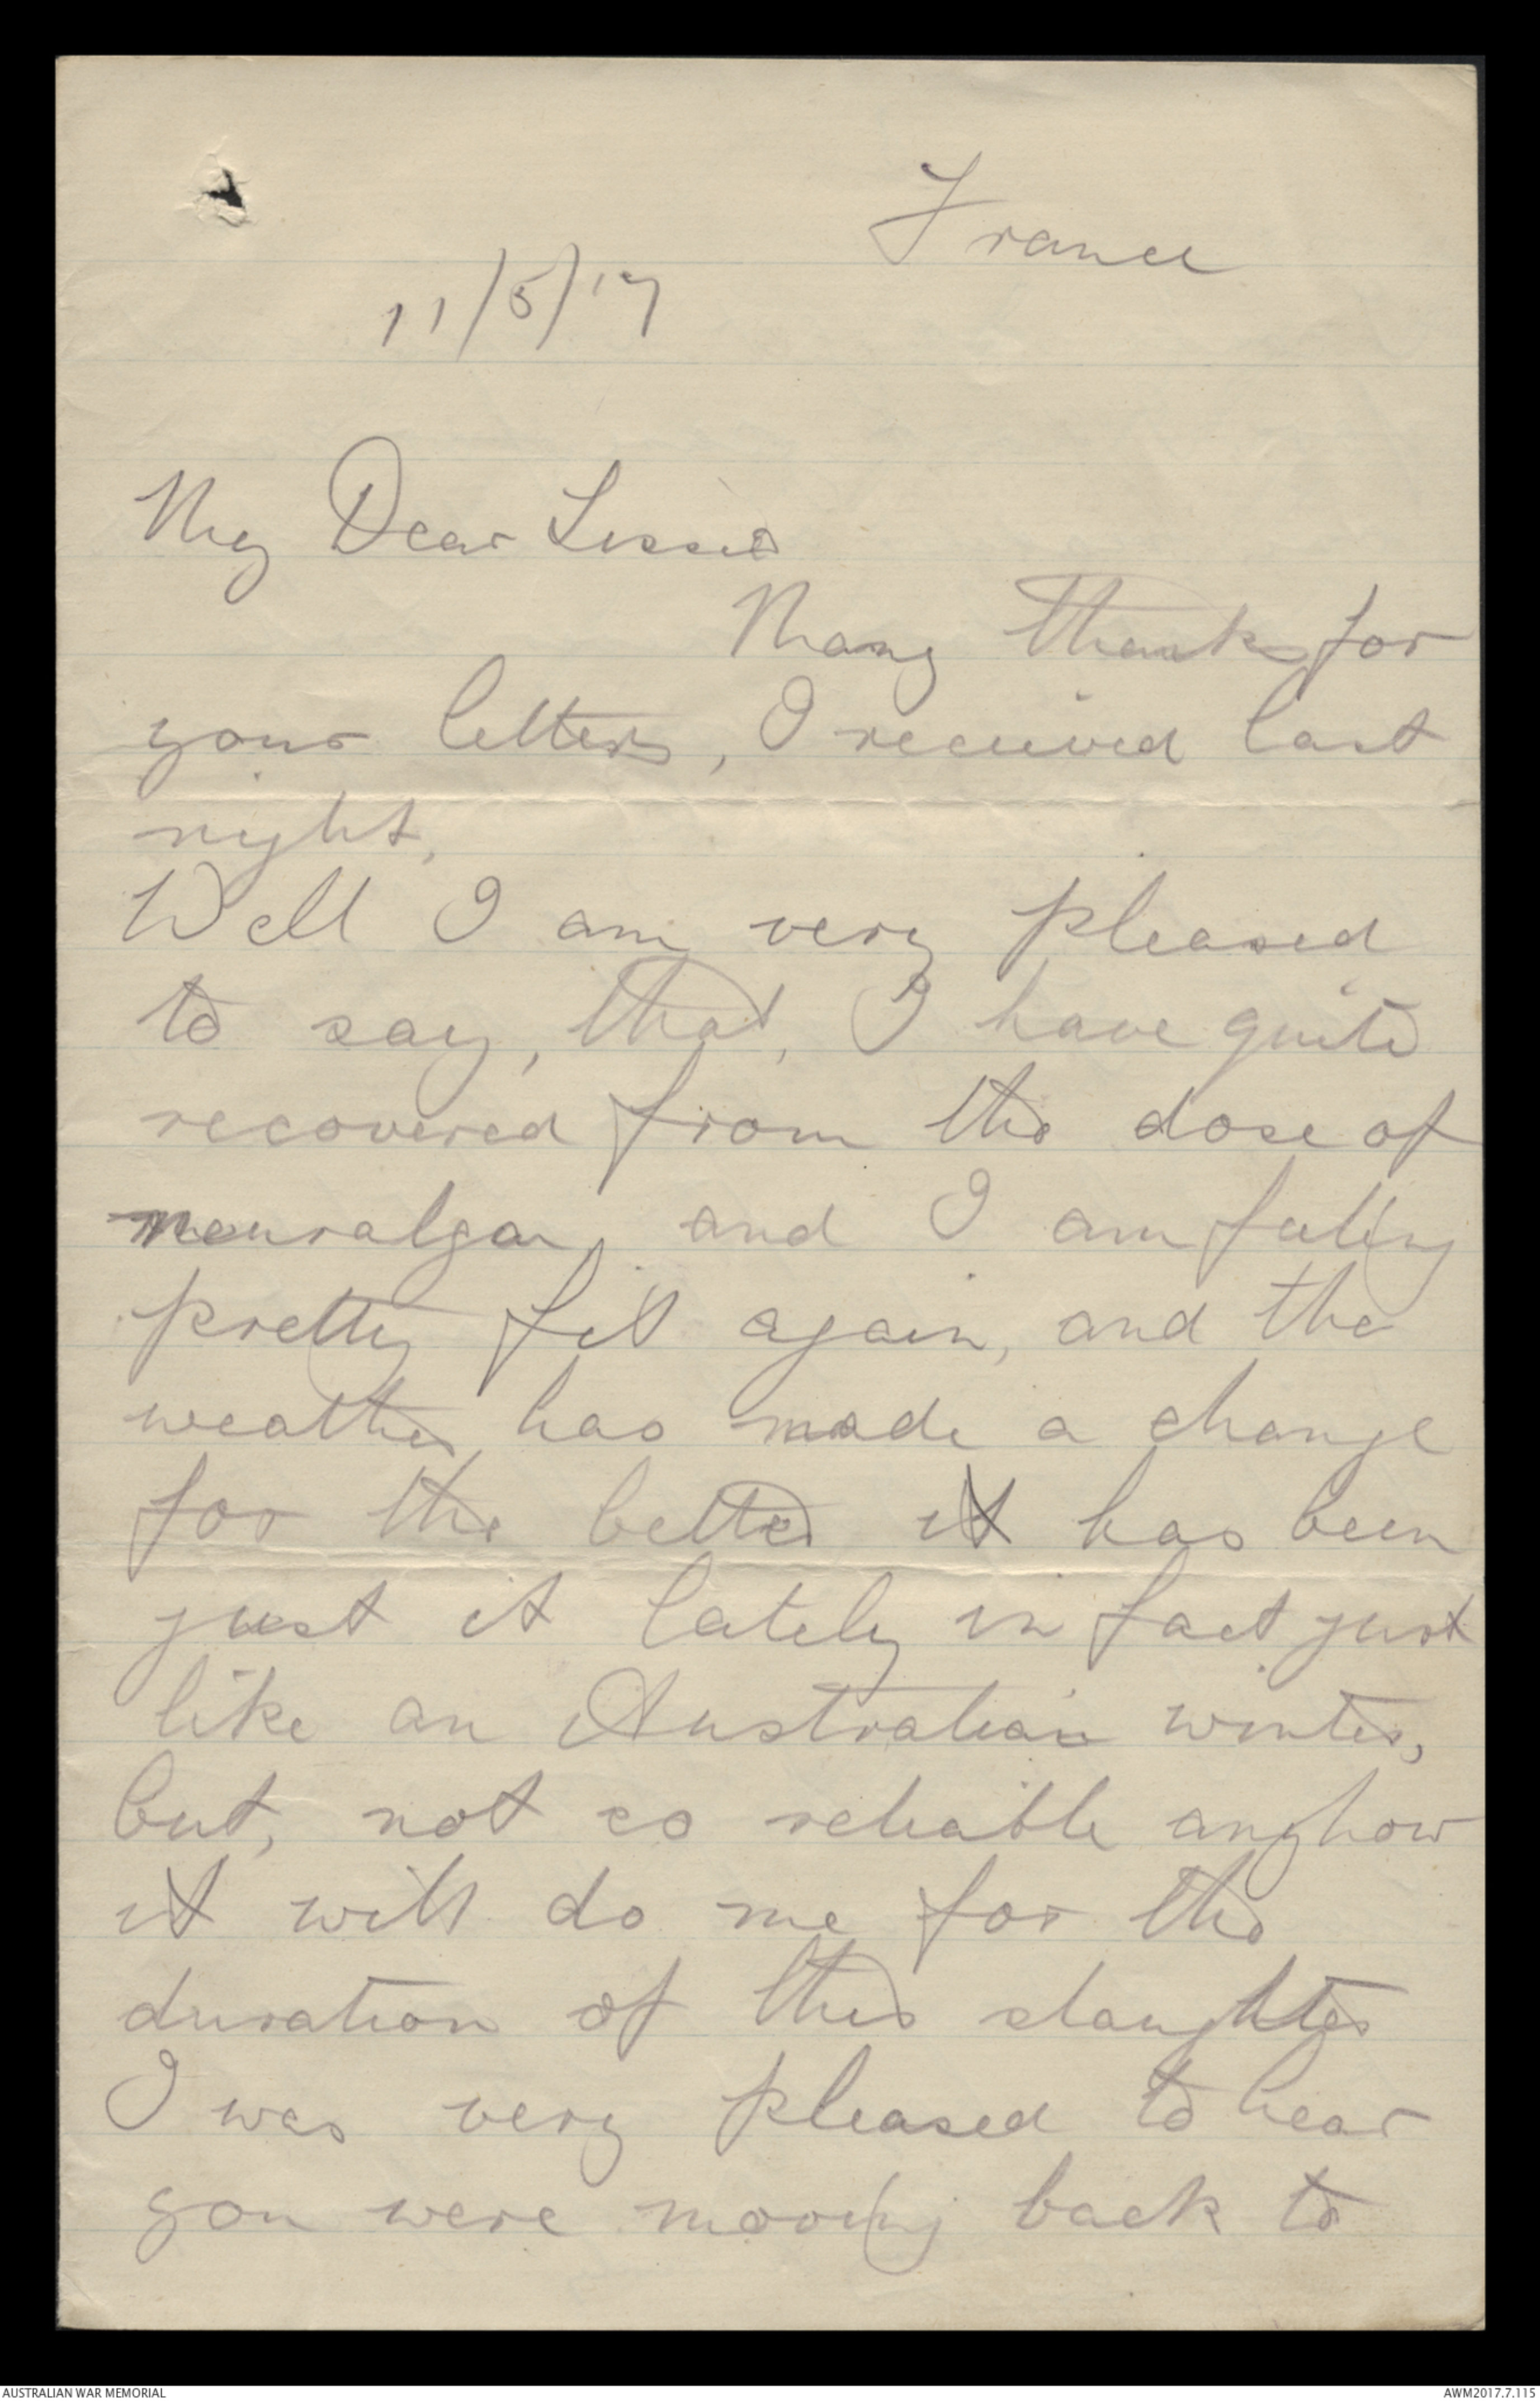 France
11/5/17
My Dear Lissie
Many thanks for
your letters, I received last
night,
Well I am very pleased
to say, that, I have quite
recovered from the dose of
neuralga, and I am feeling
pretty fit again, and the
weather has made a change
for the better it has been
just it lately in fact just
like an Australian winter,
but, not so reliable anyhow
it will do me for the
duration of this slaughter
I was very pleased to hear
you were mooving back to
AUSTRALIAN WAR MEMORIAL
AWM2017.7.115